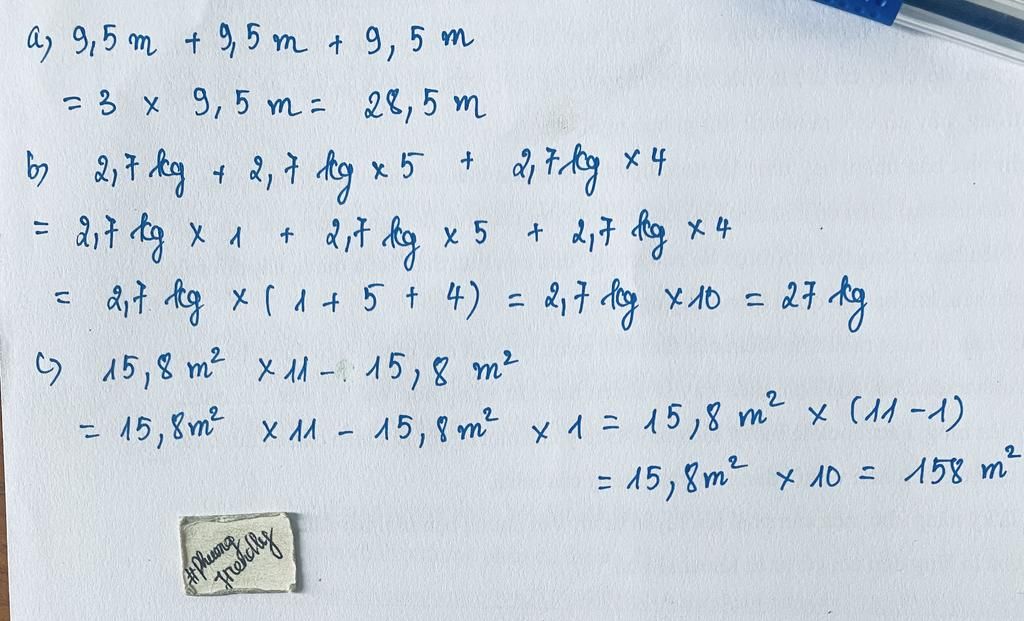 a) 9,5 m + 9,5 m + 9,5 m
= 3 x 9,5 m = 28,5 m
b) 2,7 kg + 2,7 kg x 5 + 2,7 kg x 4
= 2,7 kg x 1 + 2,7 kg x 5 + 2,7 kg x 4
= 2,7 kg x (1 + 5 + 4) = 2,7 kg x 10 = 27 kg
c) 15,8 m² x 11 - 15,8 m²
= 15,8 m² x 11 - 15,8 m² x 1 = 15,8 m² x (11 - 1)
= 15,8 m² x 10 = 158 m²
#Phuong
friendly